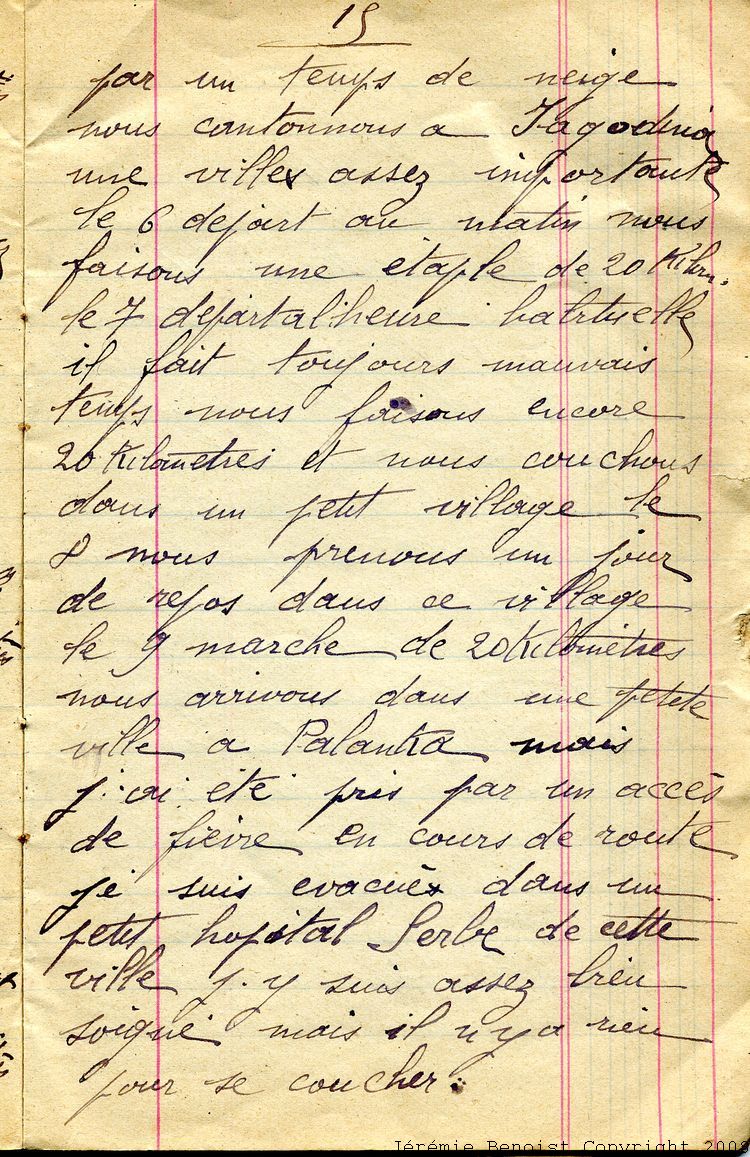 15
par un temps de neige
nous cantonnons a Jagodina
une ville assez importante
le 6 depart au matin nous
faisons une étaple de 20 Kilm.
le 7 départ a l'heure habituelle
il fait toujours mauvais
temps nous faisons encore
20 Kilomètres et nous couchons
dans un petit village le
8 nous prenons un jour
de repos dans ce village
le 9 marche de 20 Kilomètres
nous arrivons dans une petite
ville a Palanka mais
j'ai été pris par un accès
de fièvre en cours de route
je suis evacué dans un
petit hopital Serbe de cette
ville j'y suis assez bien
soigné mais il n'y a rien
pour se coucher.
Jérémie Benoist Copyright 2008